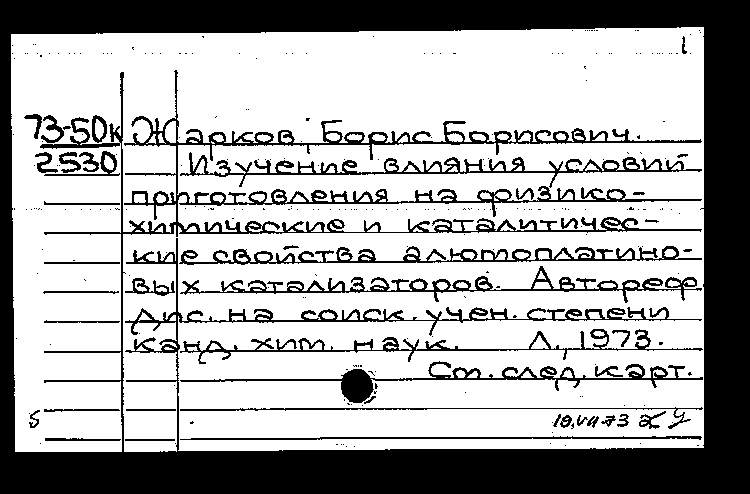 1
73-50к Жарков, Борис Борисович.
2530 Изучение влияния условий
приготовления на физико-
химические и каталитичес-
кие свойства алюмоплатино-
вых катализаторов. Автореф.
дис. на соиск. учен. степени
канд. хим. наук. Л., 1973.
См. след. карт.
5 19.VII-73